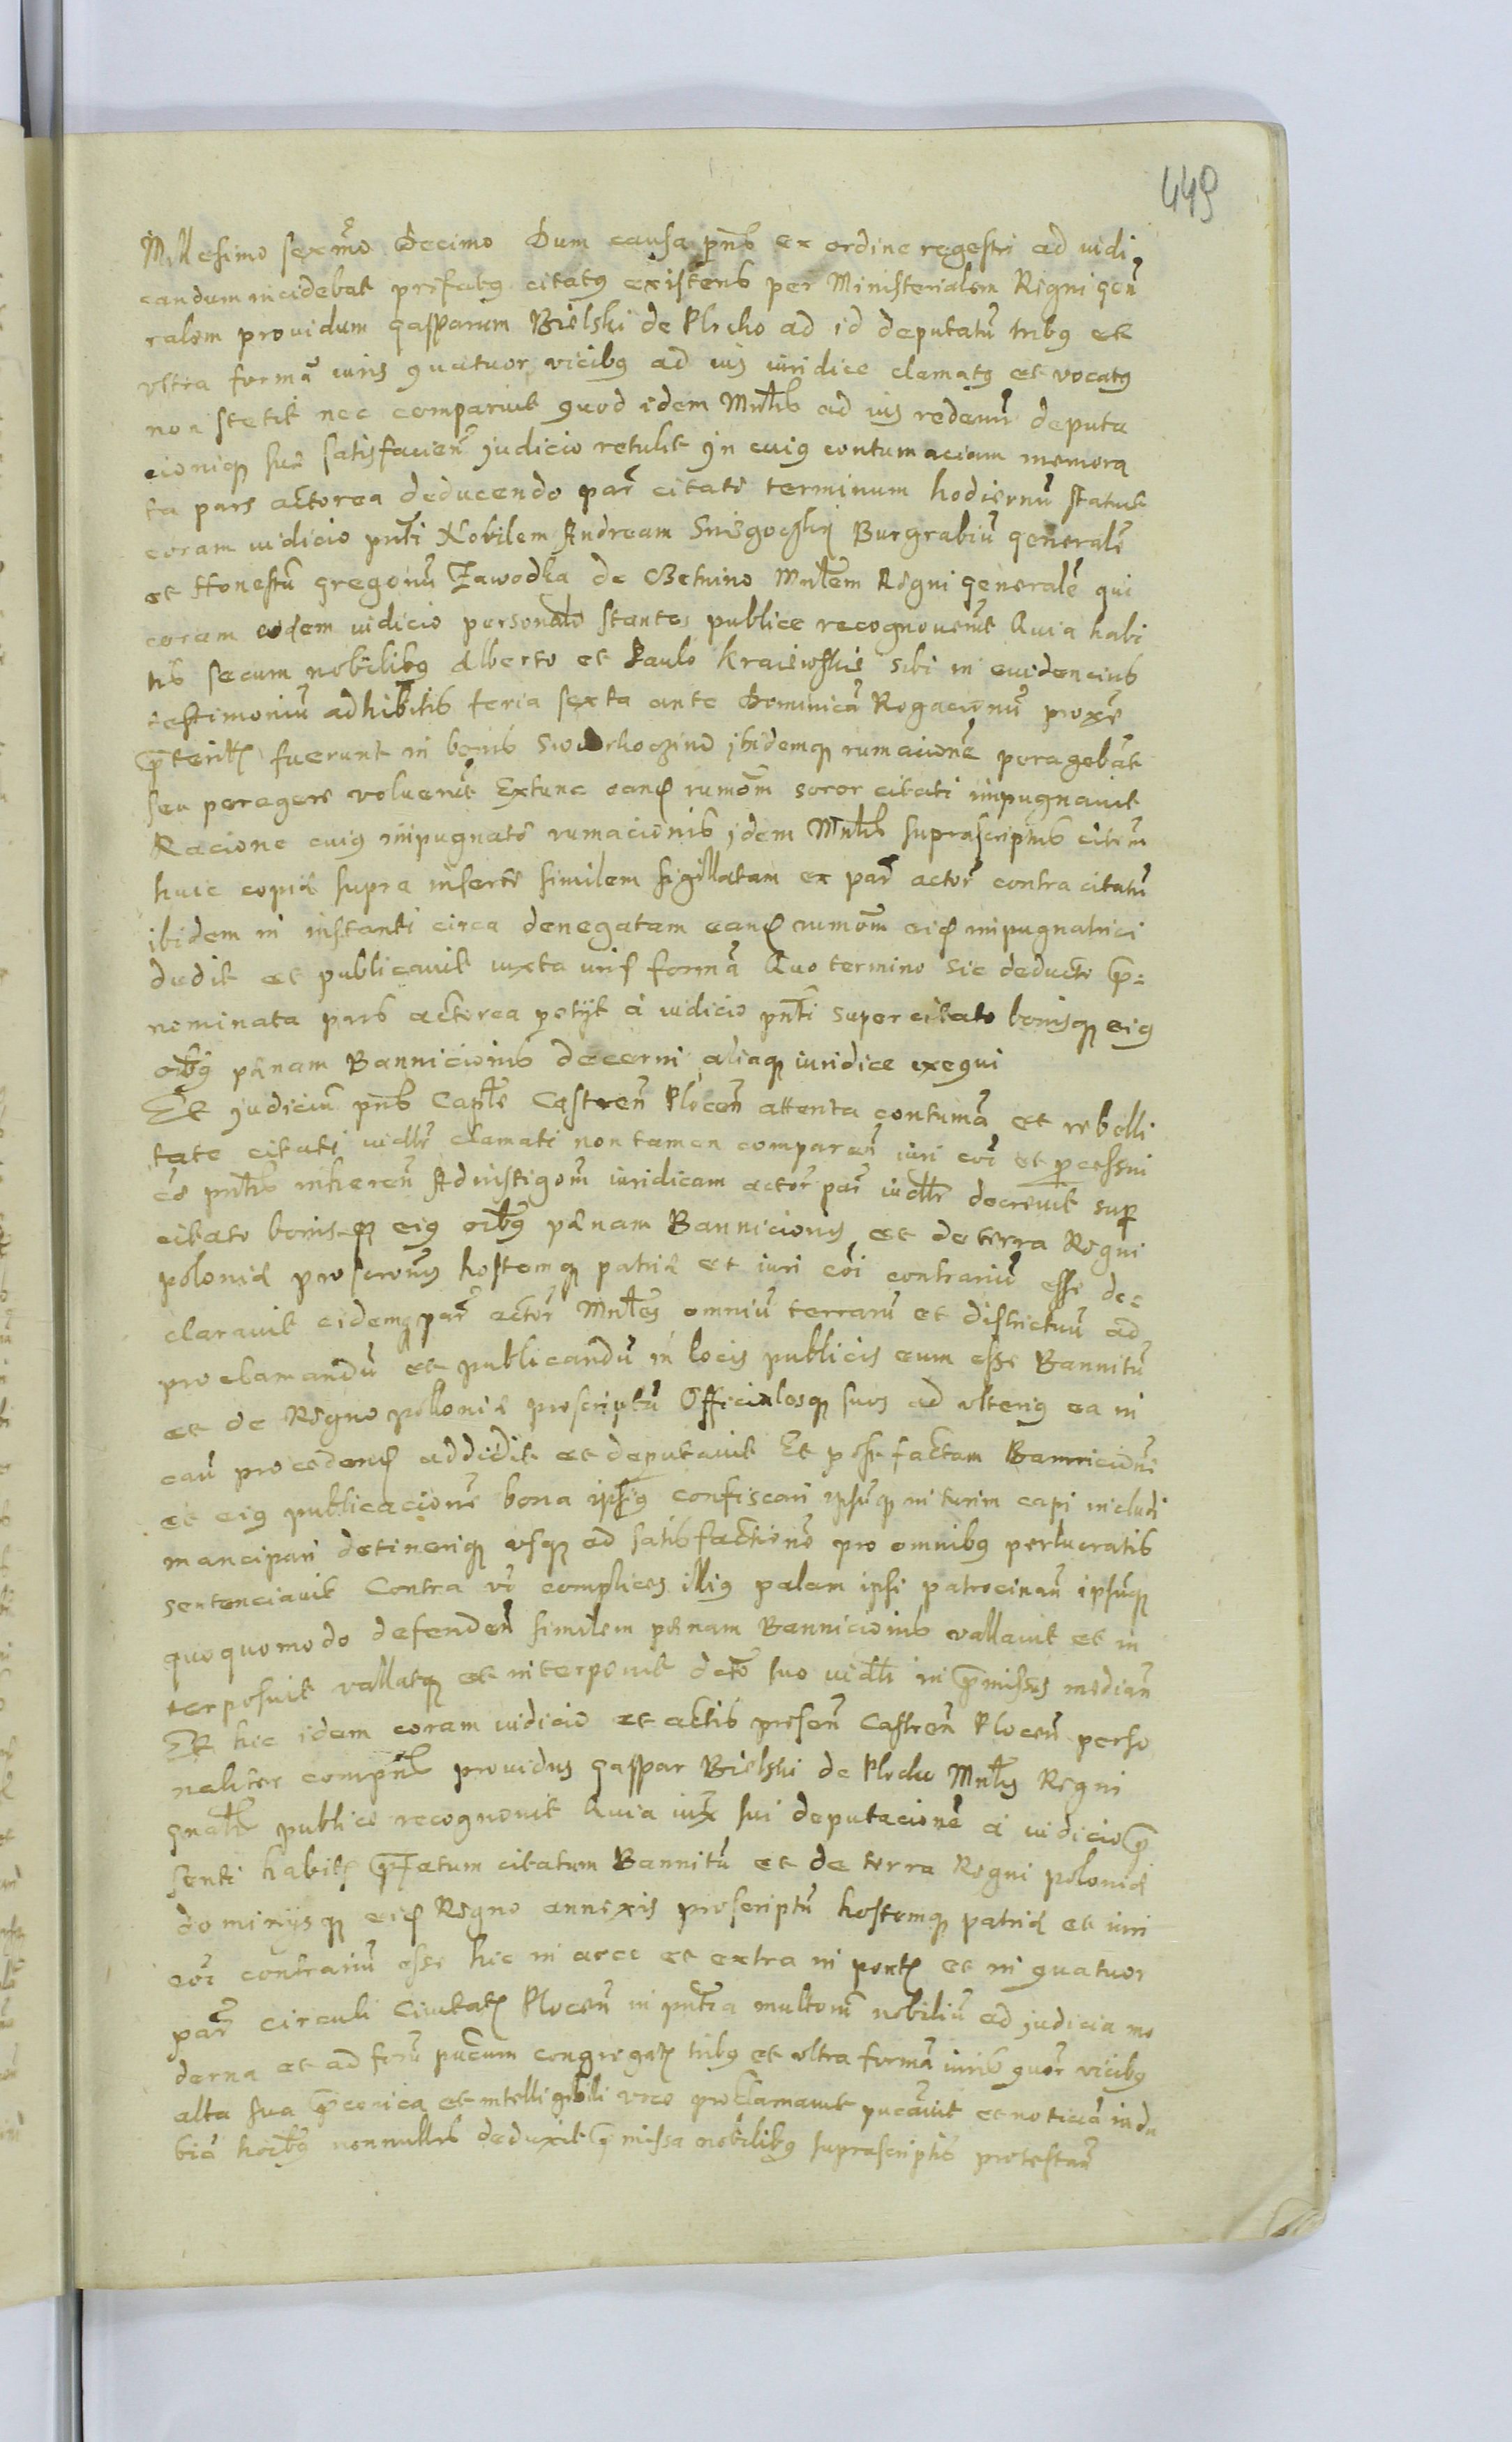 449
Millesimo sexmo Decimo Dum causa pns ex ordine regestri ad iudi
candum incidebat prefatus citatus existens per Ministerialem Regni gen
ralem prouidum gasparum Bielski de Plocko ad id deputatu tribus et
vltra forma iuris quatuor vicibus ad ius iuridice clamatus et vocatus
non stetit nec comparuit quod idem Mnlis ad ius redeun deputa
cionique sue satisfacien judicio retulit in cuius contumaciam memora
ta pars actorea deducendo par citati terminum hodiernu statuit
coram iudicio pnti Nobilem Andream Burgrabiu generale
et Honestu gregoriu Zawodka de Mnlem Regni generale qui
coram eodem iudicio personalr stantes publice recognouerut Quia habi
tis secum nobilibus Alberto et Paulo Kraiewskie sibi in euidencius
testimoniu adhibitis feria sexta ante Dominica Rogacionu proxe
preteritis fuerunt in bonis ibidemque rumacione peragebat
seu peragere voluerut Extunc eand rumom soror citati impugnauit
Racione cuius impugnate rumacionis idem Mnlis suprascriptus citem
huic copie supra inserte similem sigillatam ex par actor contra citatu
ibidem in instanti circa denegatam eand rumom eid impugnatrici
dedit et publicauit iuxta iuris forma Quo termino sic deducto pre
nominata pars actorea petijt a iudicio pnti super citato bonisque eius
oibus penam Bannicionis decerni aliaque iuridice exequi
Et judiciu pns Caple Castren Plocen attenta contuma et rebelli
tate citati iudlr clamati non tamen comparen iuri coi et processui
eo pntis inheren Ad instigom iuridicam actor par iudlr decreuit sup
citato bonisque eius oibus penam Bannicionis et de terra Regni
polonie proscronis hostemque patrie et iuri coi contrariu esse de
clarauit eidemque par actor Mnles omniu terraru et districtuu ad
proclamandu et publicandu in locis publicis eum esse Bannitu
et de Regno polonie proscriptu Officialesque suos ad vlterius ea in
cau procedend addidit et deputauit Et post factam Bannicione
et eius publicacione bona ipsius confiscari ipsuque in turim capi includi
mancipari detinerique vsque ad satisfactione pro omnibus perlucratis
sentenciauit Contra vo complices illius palam ipsi patrocinan ipsuque
quoquomodo defenden similem penam Bannicionis vallauit et in
terposuit vallatque et interponit deto suo iudli in premissis median
Et hic idem coram iudicio et actis presen Castren Plocen perso
naliter compns prouidus gaspar Bielski de Plocko Mnlis Regni
gnalis publice recognouit Quia iux sui deputacione a iudicio pre
senti habitis prefatum citatum Bannitu et de terra Regni polonie
dominijsque eid Regno annexis proscriptu hostemque patrie et iuri
coi contrariu esse hic in arce et extra in pontis et in quatuor
par circuli Ciuitatis Plocen in pntia multoru nobiliu ad judicia mo
derna et ad foru pucum congregatis tribus et vltra forma iuris quor vicibus
alta sua preconica et intelligibili voce proclamauit pucauit et noticia indu
bie hoibus nonnullis deduxit premissa nobilibus suprascriptis protestan